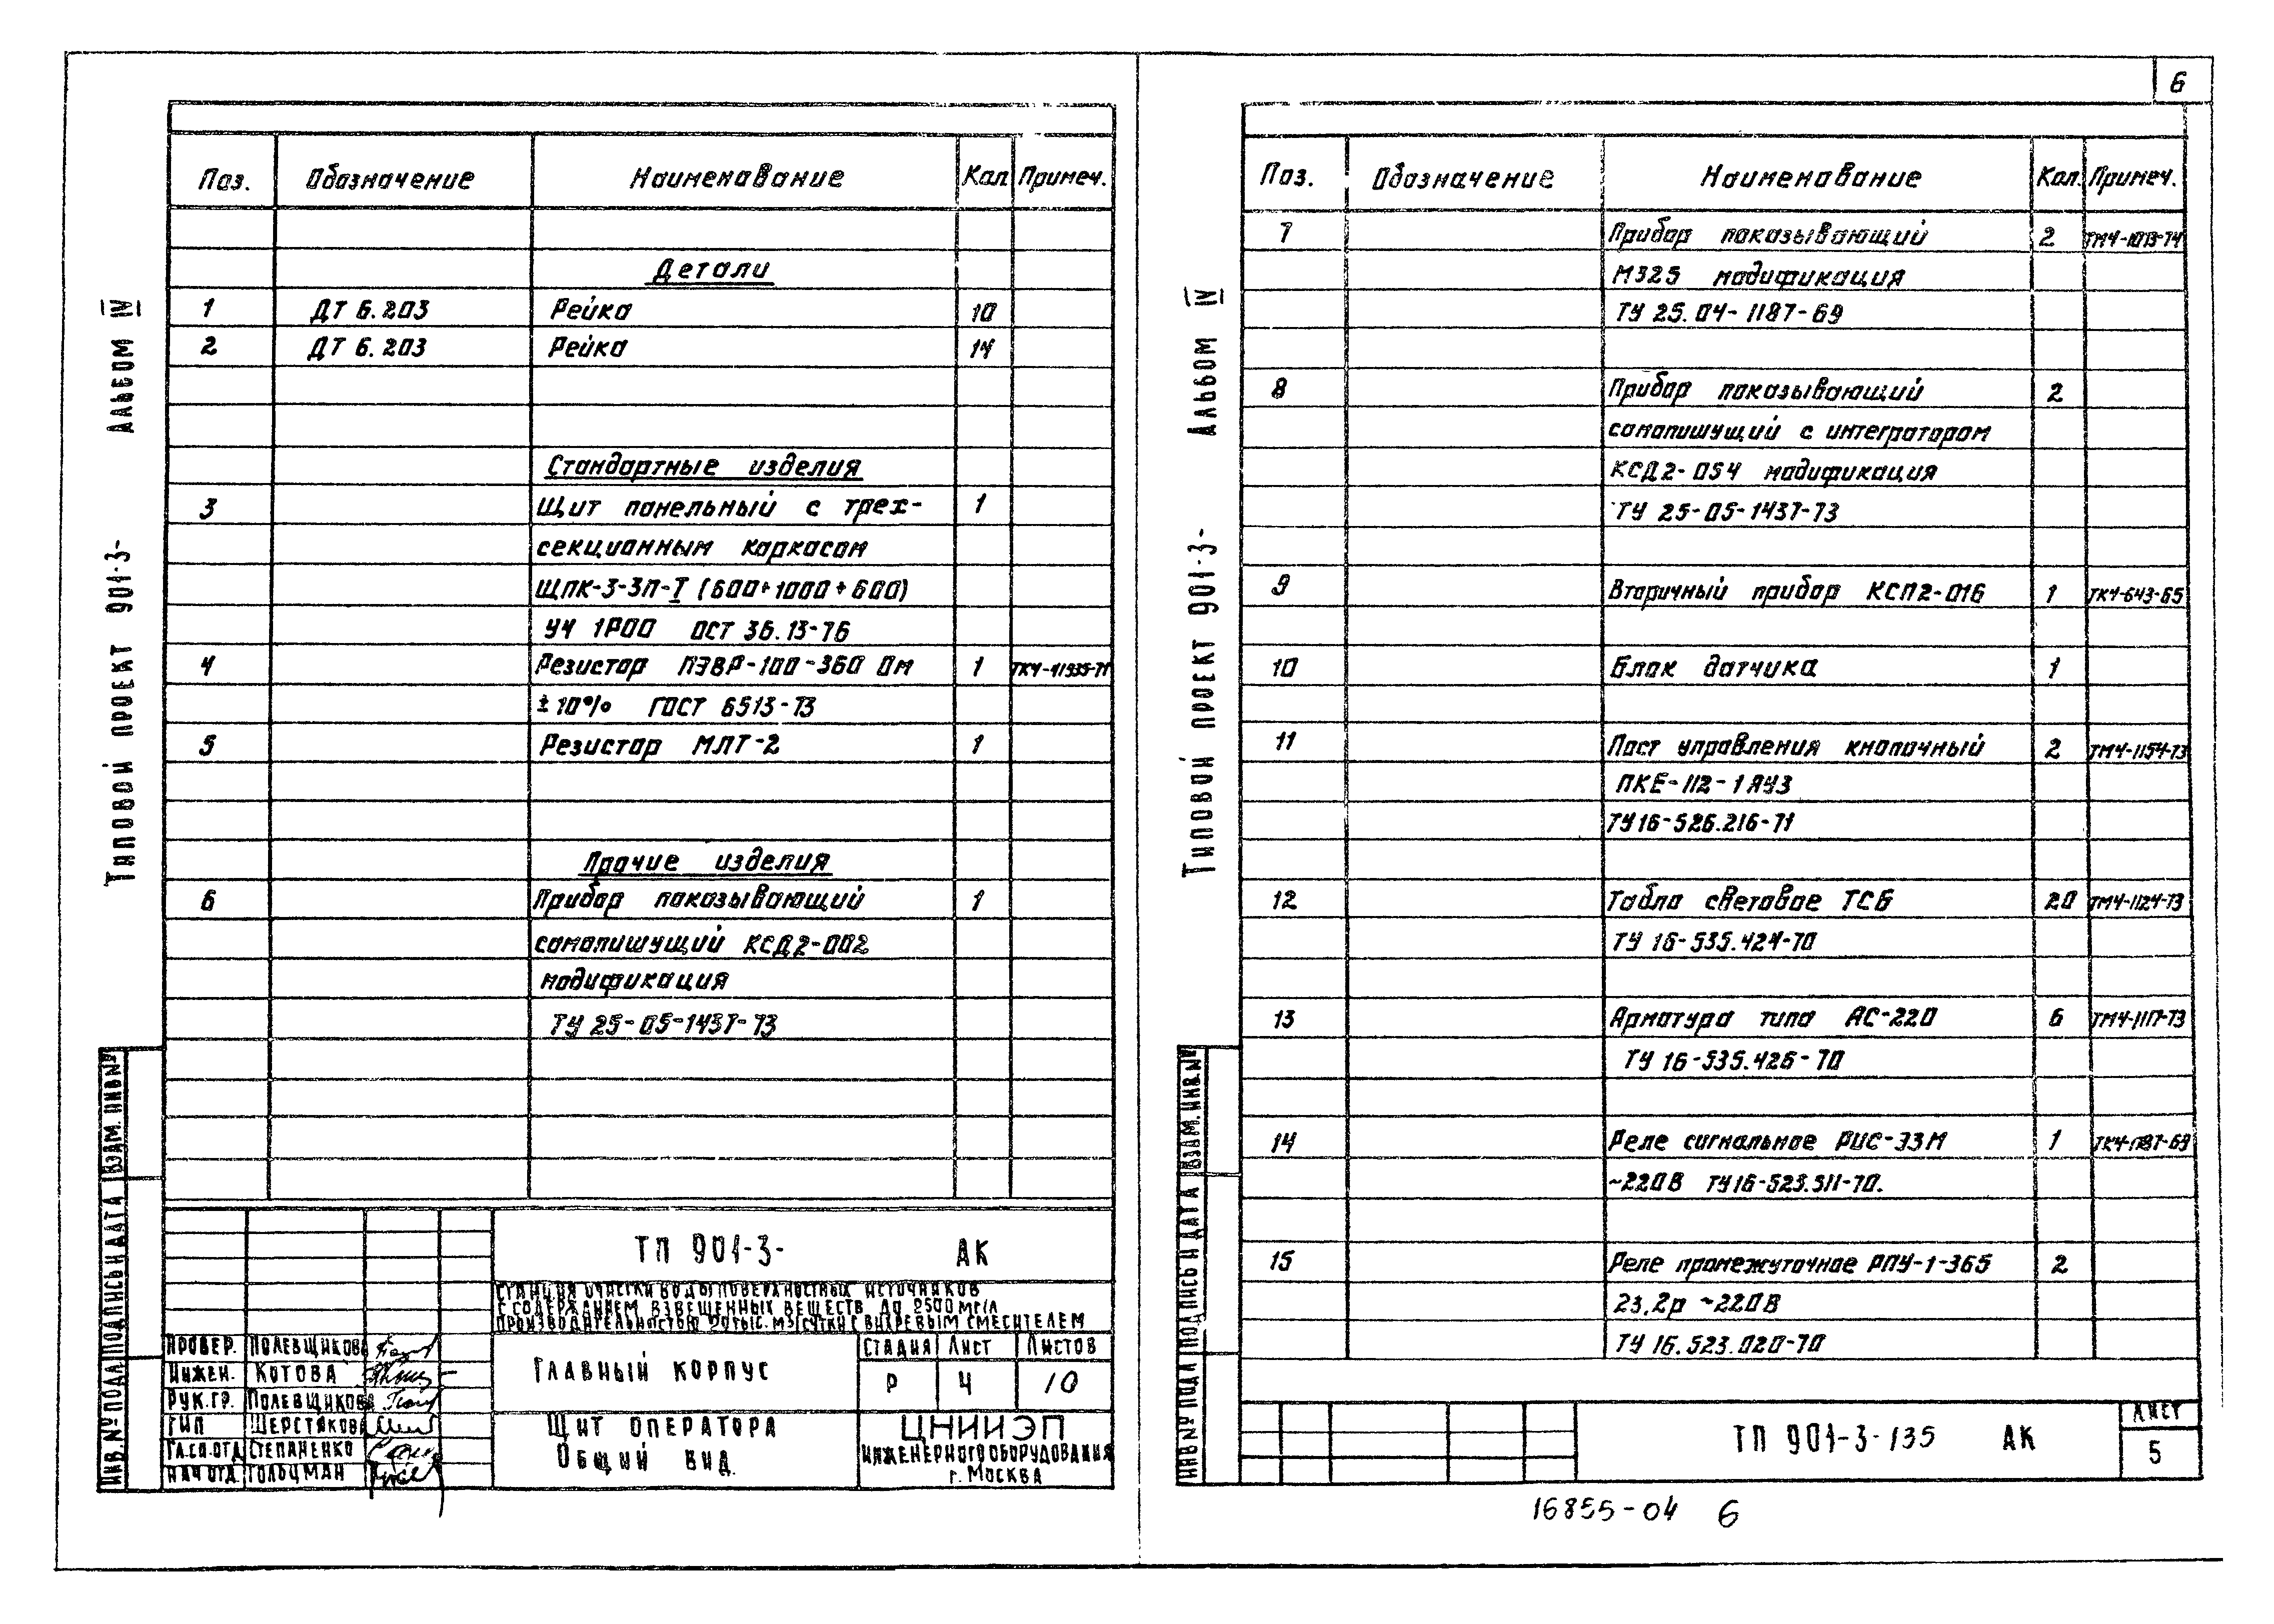 6
Альбом IV
Типовой проект 901-3-
Поз. Обозначение Наименование Кол Примеч.
Детали
1 ДТ 6.203 Рейка 10
2 ДТ 6.203 Рейка 14
Стандартные изделия
3 Щит панельный с трех- 1
секционным каркасом
ЩПК-3-ЗП-I (600+1000+600)
УЧ 1Р00 ОСТ 36.13-76
4 Резистор ПЭВР-100-360 Ом 1
±10% ГОСТ 6513-73
5 Резистор МЛТ-2 1
Прочие изделия
6 Прибор показывающий 1
самопишущий КСД2-002
модификация
ТУ 25-05-1437-73
ИНВ.№ ПОДЛ ПОДПИСЬ И ДАТА ВЗАМ.ИНВ№
ТП 901-3- АК
СТАНЦИЯ ОЧИСТКИ ВОДЫ ПОВЕРХНОСТНЫХ ИСТОЧНИКОВ
С СОДЕРЖАНИЕМ ВЗВЕШЕННЫХ ВЕЩЕСТВ ДО 2500 МГ/Л
ПРОИЗВОДИТЕЛЬНОСТЬЮ ТЫС. М3/СУТКИ С ВИХРЕВЫМ СМЕСИТЕЛЕМ
ПРОВЕР. ПОЛЕВЩИКОВА
ИНЖЕН. КОТОВА
РУК.ГР. ПОЛЕВЩИКОВА
ГИП ШЕРСТЯКОВА
ГЛ.СП.ОТД СТЕПАНЕНКО
НАЧ ОТД ГОЛЬЦМАН
ГЛАВНЫЙ КОРПУС
СТАДИЯ ЛИСТ ЛИСТОВ
Р 4 10
ЩИТ ОПЕРАТОРА
ОБЩИЙ ВИД.
ЦНИИЭП
ИНЖЕНЕРНОГО ОБОРУДОВАНИЯ
г. МОСКВА
Альбом IV
Типовой проект 901-3-
Поз. Обозначение Наименование Кол. Примеч.
7 Прибор показывающий 2 ТМ4-1013-74
М325 модификация
ТУ 25.04-1187-69
8 Прибор показывающий 2
самопишущий с интегратором
КСД2-054 модификация
ТУ 25-05-1437-73
9 Вторичный прибор КСП2-016 1 ТК4-643-65
10 Блок датчика 1
11 Пост управления кнопочный 2 ТМ4-1154-73
ПКЕ-112-1 ЯУ3
ТУ16-526.216-71
12 Табло световое ТСБ 20 ТМ4-1124-73
ТУ 16-535.424-70
13 Арматура типа АС-220 6 ТМ4-1117-73
ТУ 16-535.426-70
14 Реле сигнальное РИС-Э3М 1
~220В ТУ16-523.311-70.
15 Реле промежуточное РПУ-1-365 2
2з,2р ~220В
ТУ 16.523.020-70
ИНВ.№ ПОДЛ ПОДПИСЬ И ДАТА ВЗАМ.ИНВ.№
ТП 901-3-135 АК
ЛИСТ
5
16855-04 6